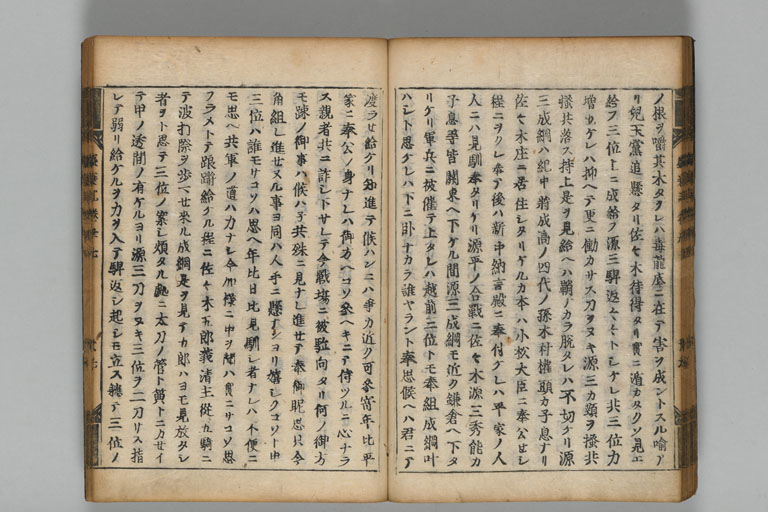 ノ根ヲ嚼其木タクレハ毒龍底ニ在テ害ヲ成ントスル喩ア
リ兒玉黨追懸タリ佐々木待得タリ實ニ遁カタクソ見エ
給フ三位上ニ成給フ源三騨返々々トシケレ共三位力
増リケレハ抑ヘテ更ニ働カサス刀ヲヌキ源三カ頸ヲ掻共
掻共落ス持上是ヲ見給ヘハ鞘ノカラ脱タレハ不切ケリ源
三成綱ハ紀中将成高ノ四代ノ孫木村權頭カ子息ナリ
佐々木庄ニ居住シタリケルカ本ハ小松大臣ニ奉公セシ
程ニヲクレ奉テ後ハ新中納言殿ニ奉付ケレハ平家ノ人
人ニハ見馴奉タリケリ源平ノ合戰ニ佐々木源三秀能カ
子息等皆關東ヘ下ケル間源三成綱モ近ク鎌倉ヘ下タ
リケリ軍兵ニ被催テ上タレハ越前三位トモ奉組成綱叶
ハシト思ケレハ下ニ臥ナカラ誰ヤラント奉思候ヘハ君ニテ
渡ラセ給ケリ知進テ候ハンニハ爭カ近ク可參寄年比平
家ニ奉公ノ身ナレハ御方ヘコソ參ヘキニテ侍ツルニ心ナラ
ス親者共ニ詐レ下サレテ今戰場ニ被駈向タリ何ノ御方
モ疎ノ御事ハ候ハ子共殊ニ見ナレ進セテ奉御眤思只今
角組レ進セヌル事ヲ同ハ人手ニ懸テンヨリ嬉シクコソト申
三位ハ誰モサコソハ思ヘ年比日比見馴シ者ナレハ不便ニ
モ思ヘ共軍ノ道ハ力ナシ今加樣ニ申ヲ聞ハ實ニサコソ思
フラメトテ踉蹡給ケル程ニ佐々木五郎義清主從九騎ニ
テ波打際ヲ歩ハセ來ル成綱是ヲ見テ五郎ハヨモ見放タシ
者ヲト思テ三位ノ案シ煩タル處ニ太刀ノ管ト貫トニカセイ
テ甲ノ透間ノ有ケルヨリ源三刀ヲヌキ三位ヲ二刀リス指
レテ弱リ給ケルヲ力ヲ入テ騨返シ起シモ立ス軈テ三位ノ